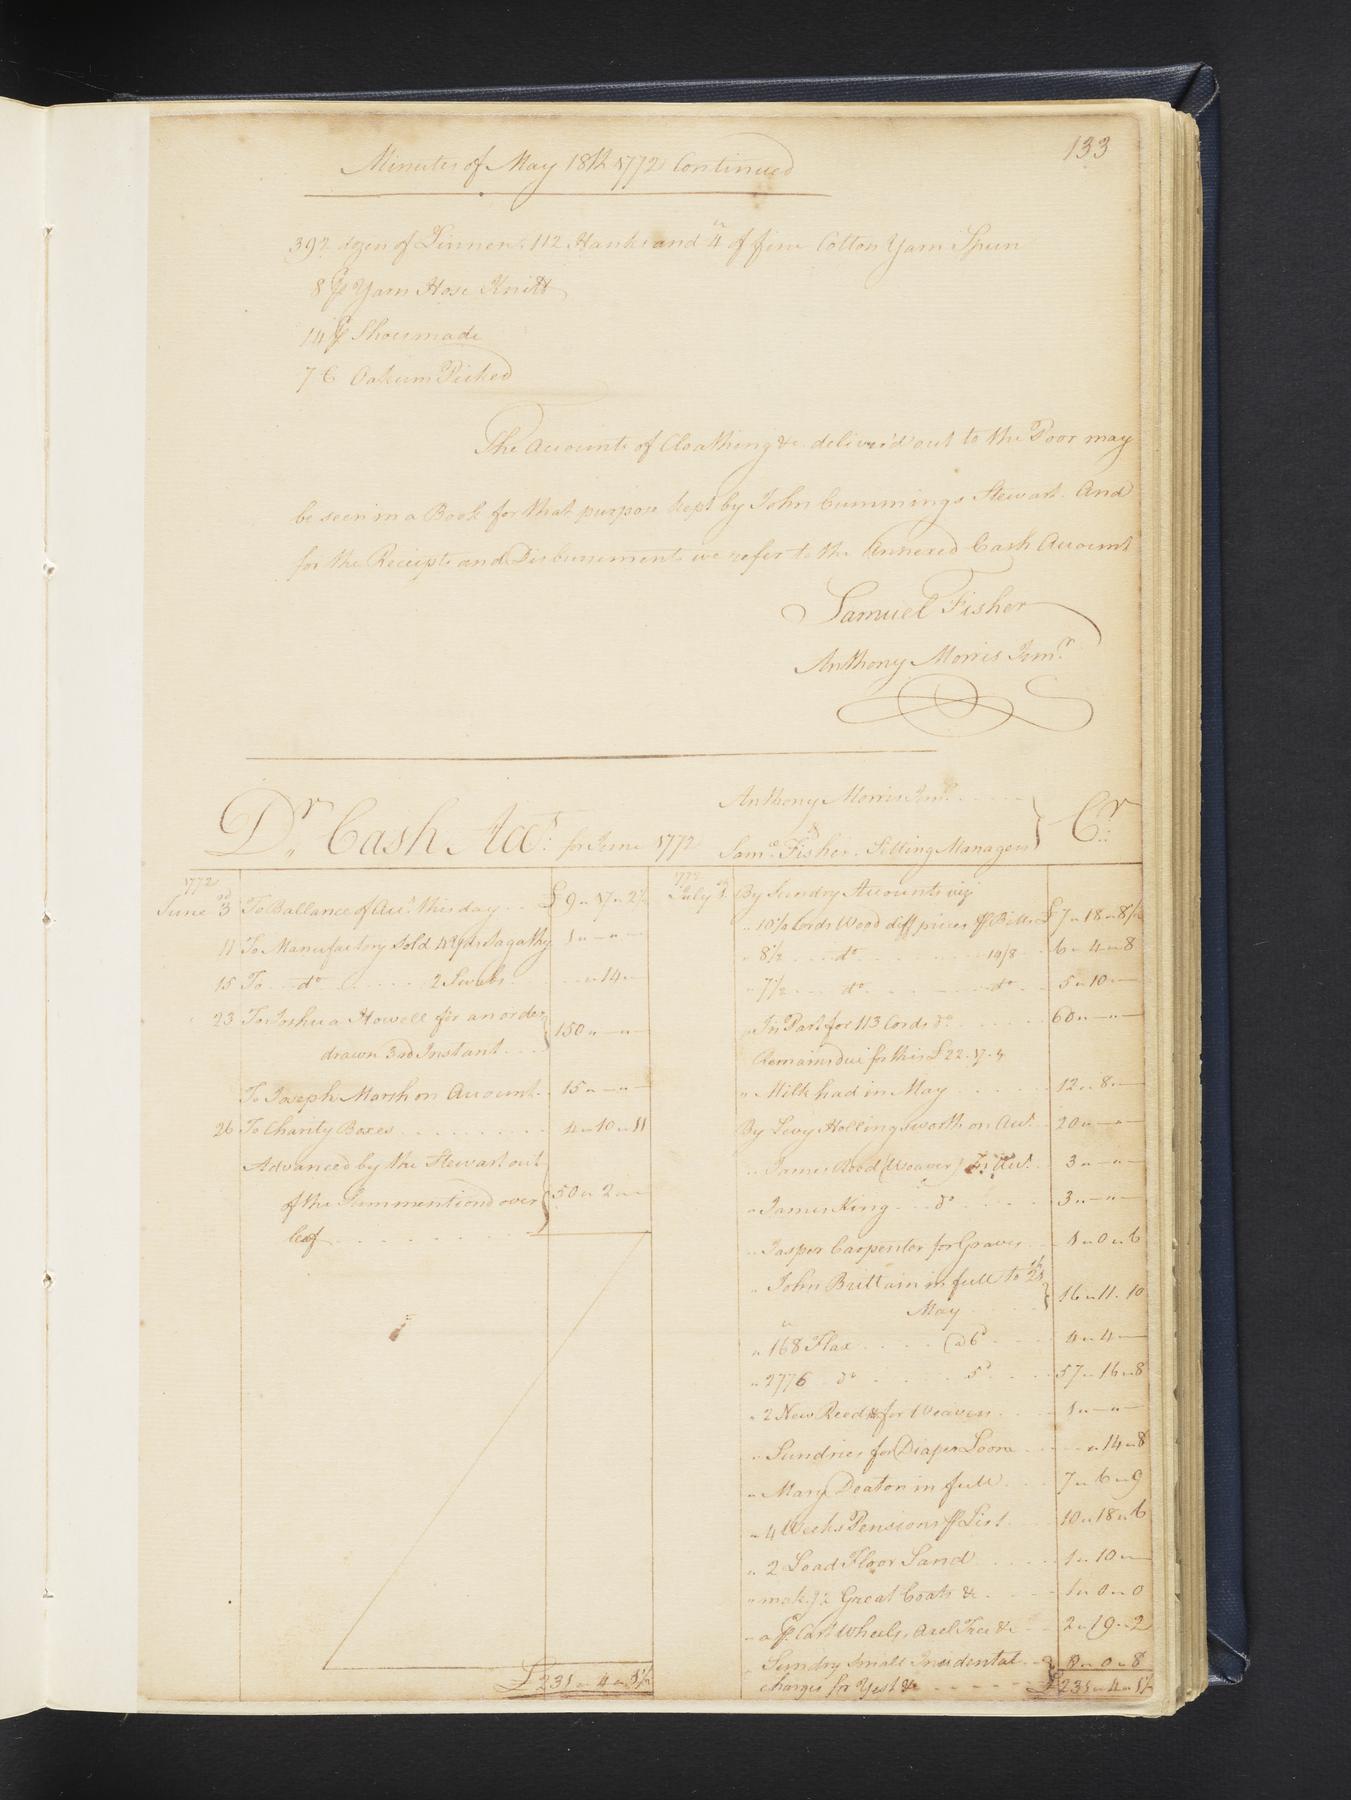 133
Minutes of May 18th 1772 Continued
392 dozen of Linnen, 112 Hanks and 4 of fine Cotton Yarn Spun
8 pr Yarn Hose Knitt
14 pr Shoes made
7 C Oakum Picked
The Accounts of Cloathing &c. deliver'd out to the Poor may
be seen in a Book for that purpose kept by John Cummings Stewart. And
for the Receipts and Disbursements we refer to the Annexed Cash Account
Samuel Fisher
Anthony Morris Junr.
Dr. Cash Acct. for June 1772 Anthony Morris Junr. & Saml. Fisher. Sitting Managers Cr.
1772
June 3d To Ballance of Acct. this day £ 9 „ 17 „ 2½
11 To Manufactory Sold 4 Yds Sagathy 1 „ — „ —
15 To do 2 Swabs „ 14 „ —
23 To Joshua Howell for an order
drawn 3rd Instant 150 „ — „ —
To Joseph Marsh on Account 15 „ — „ —
26 To Charity Boxes 4 „ 10 „ 11
Advanced by the Stewart out
of the Sum mention'd over 50 „ 2 „ —
leaf
£ 231 „ 4 „ 1½
1772
July 1st By Sundry Accounts viz
„ 10½ Cords Wood diff prices pr Bills £ 7 „ 18 „ 8½
„ 8½ do 14/8 6 „ 4 „ 8
„ 7½ do do 5 „ 10 „ —
„ In Part for 113 Cords do 60 „ — „ —
Remains due for this £ 22 „ 17 „ 4
„ Milk had in May 12 „ 8 „ —
By Levy Hollingsworth on Acct. 20 „ — „ —
„ James Rood (Weaver) In Acct. 3 „ — „ —
„ James King do 3 „ — „ —
„ Jasper Carpenter for Graves 1 „ 0 „ 6
„ John Brittain in full to 21st
May 16 „ 11 „ 10
„ 168 Flax @ 6d 4 „ 4 „ —
„ 2776 do 5d 57 „ 16 „ 8
„ 2 New Reeds for Weavers 1 „ — „ —
„ Sundries for Diaper Loom „ 14 „ 8
„ Mary Deaton in full 7 „ 6 „ 9
„ 4 Weeks Pensions pr List 10 „ 18 „ 6
„ 2 Load Floor Sand 1 „ 10 „ —
„ making Great Coats &c. 1 „ 0 „ 0
„ a pr. Cart Wheels, Axel Tree &c 2 „ 19 „ 2
„ Sundry Small Incidental 8 „ 0 „ 8
charges for Yest &c £ 231 „ 4 „ 1½